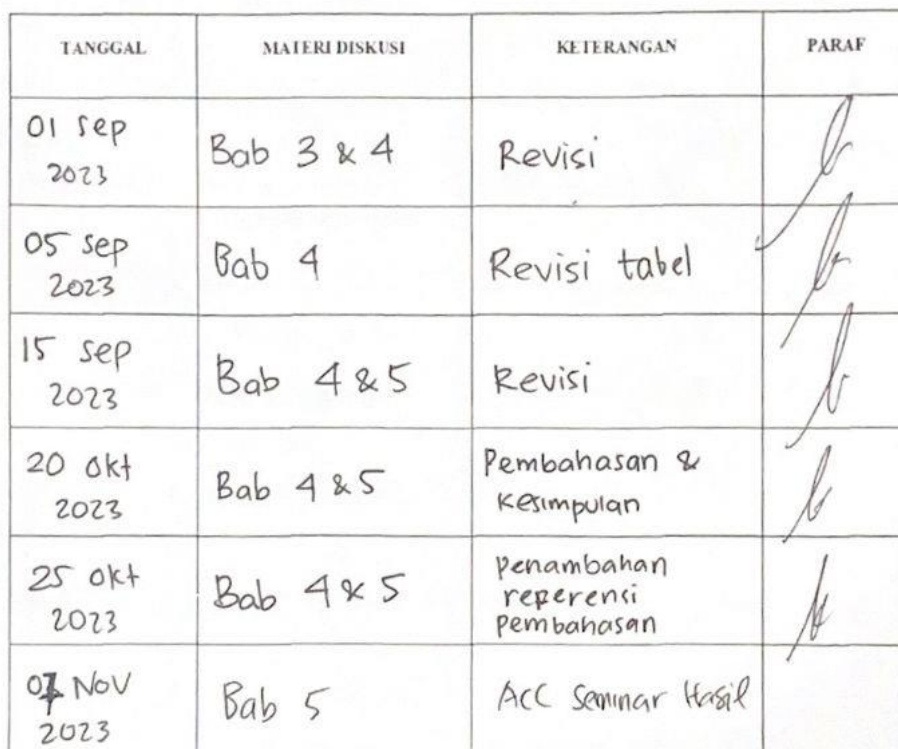 TANGGAL MATERI DISKUSI KETERANGAN PARAF
01 Sep
2023
Bab 3 & 4
Revisi
05 Sep
2023
Bab 4
Revisi tabel
15 Sep
2023
Bab 4 & 5
Revisi
20 Okt
2023
Bab 4 & 5
Pembahasan &
Kesimpulan
25 Okt
2023
Bab 4 & 5
Penambahan
reperensi
pembahasan
Nov
2023
Bab 5
ACC Seminar Hasil